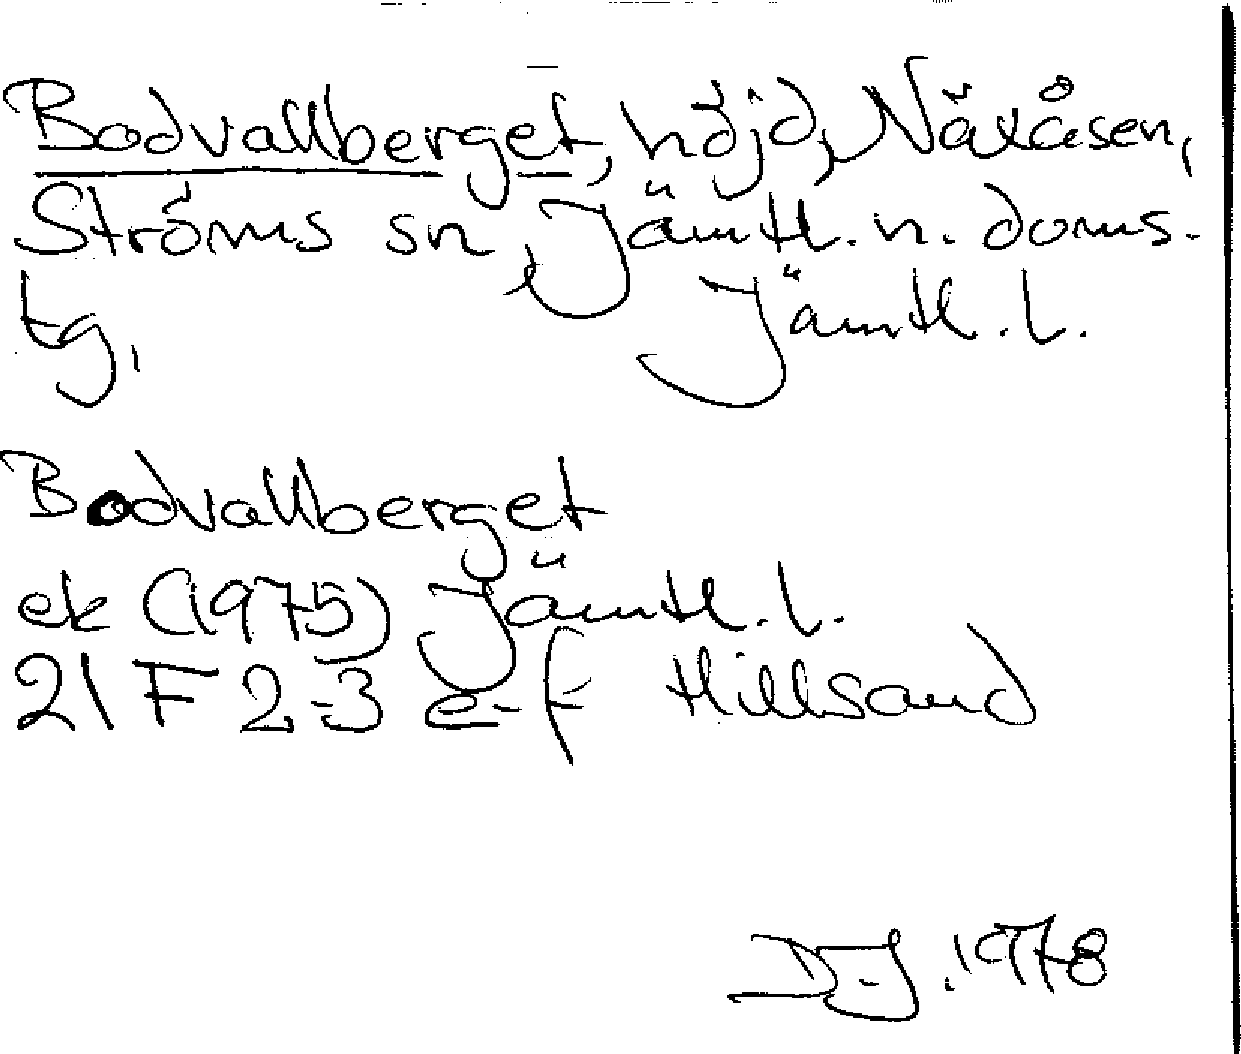 Bodvallberget, höjd, Näxåsen,
Ströms sn, Jämtl. n. doms-
tg, Jämtl. l.
Bodvallberget
ek (1975) Jämtl. l.
21 F 2-3 e-f Hillsand
D-J. 1978